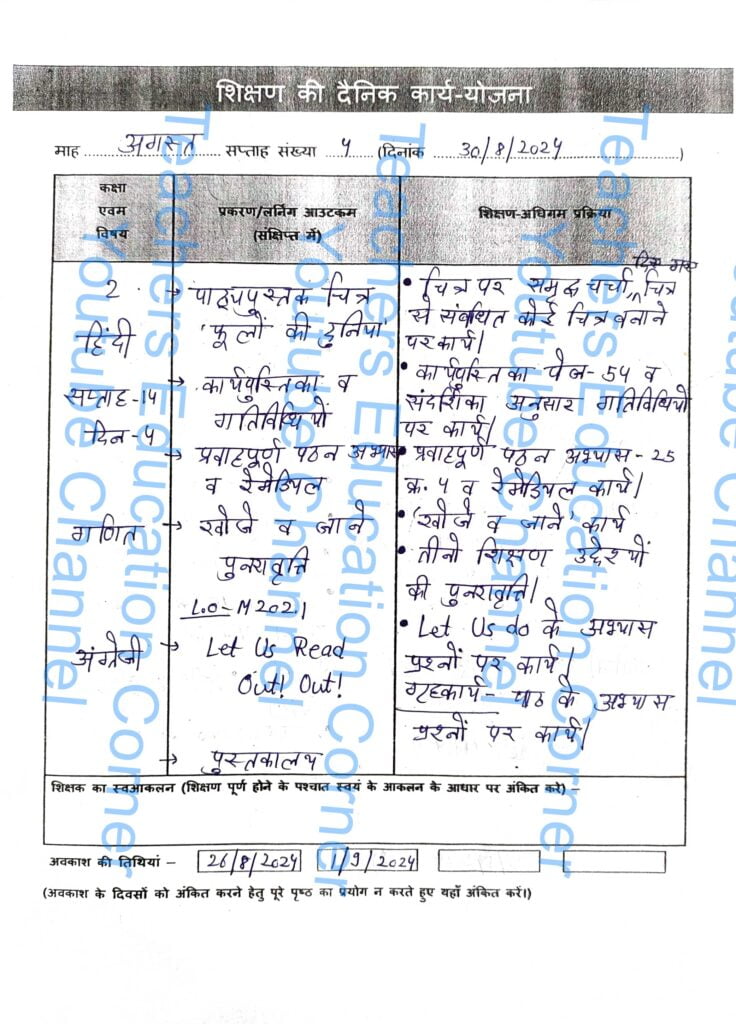 शिक्षण की दैनिक कार्य-योजना
माह अगस्त सप्ताह संख्या 5 (दिनांक 30/8/2024)
कक्षा
एवम
विषय
प्रकरण/लर्निंग आउटकम
(संक्षिप्त में)
शिक्षण-अधिगम प्रक्रिया
2
हिंदी
सप्ताह-14
दिन-5
→ पाठ्यपुस्तक चित्र
'फूलों की दुनिया'
→ कार्यपुस्तिका व
गतिविधियों
→ प्रवाहपूर्ण पठन अभ्यास
व रेमेडियल
• चित्र पर समृद्ध चर्चा, चित्र
से संबंधित कोई चित्र बनाने
पर कार्य।
• कार्यपुस्तिका पेज-54 व
संदर्शिका अनुसार गतिविधियों
पर कार्य।
• प्रवाहपूर्ण पठन अभ्यास-25
क्र. 5 व रेमेडियल कार्य।
गणित
→ खोजे व जाने
पुनरावृत्ति
L.O-M202.1
• 'खोजे व जाने' कार्य
• तीनो शिक्षण उद्देश्यों
की पुनरावृत्ति।
अंग्रेजी
→ Let Us Read
Out! Out!
→ पुस्तकालय
• Let Us do के अभ्यास
प्रश्नों पर कार्य।
गृहकार्य- पाठ के अभ्यास
प्रश्नों पर कार्य।
शिक्षक का स्वआकलन (शिक्षण पूर्ण होने के पश्चात स्वयं के आकलन के आधार पर अंकित करे) –
अवकाश की तिथियां – 26/8/2024 1/9/2024
(अवकाश के दिवसों को अंकित करने हेतु पूरे पृष्ठ का प्रयोग न करते हुए यहाँ अंकित करें।)
Teachers Education Corner
Youtube Channel
Teachers Education Corner
Youtube Channel
Teachers Education Corner
Youtube Channel